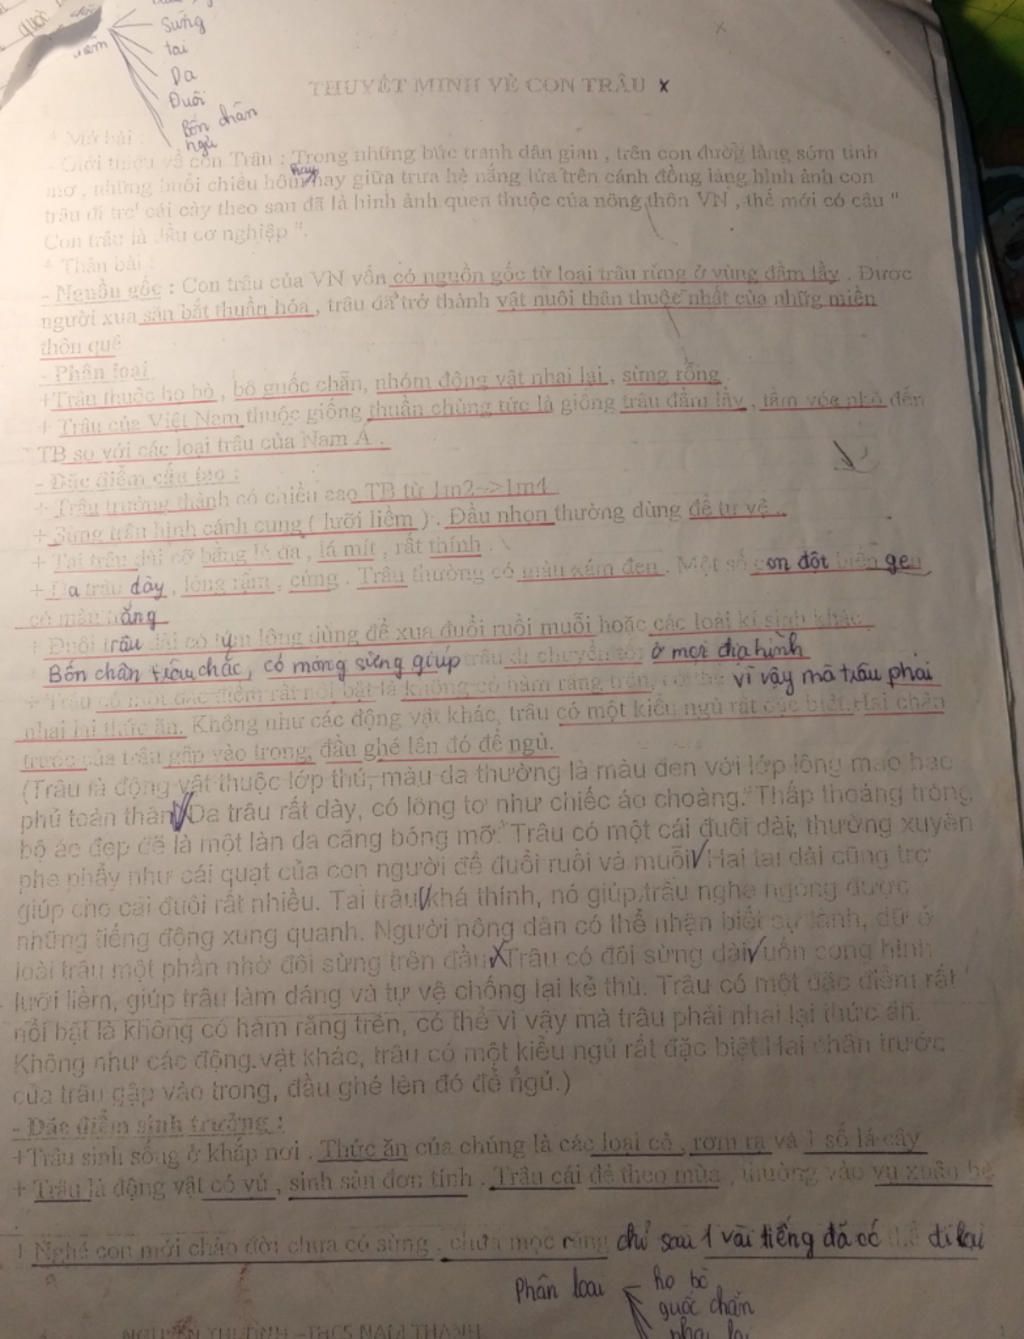 quốc
Sừng
tai
Da
Đuôi
Bốn chân
ngủ
THUYẾT MINH VỀ CON TRÂU x
* Mở bài :
- Giới thiệu về con Trâu : Trong những bức tranh dân gian , trên con đường làng sớm tinh
mơ , những buổi chiều hôm hay giữa trưa hè nắng lửa trên cánh đồng làng hình ảnh con
trâu đi trc' cái cày theo sau đã là hình ảnh quen thuộc của nông thôn VN , thế mới có câu "
Con trâu là đầu cơ nghiệp ".
* Thân bài :
- Nguồn gốc : Con trâu của VN vốn có nguồn gốc từ loại trâu rừng ở vùng đầm lầy . Được
người xua săn bắt thuần hóa , trâu đã trở thành vật nuôi thân thuộc nhất của nhữg miền
thôn quê
- Phân loại
+Trâu thuộc họ bò , bộ guốc chẵn, nhóm động vật nhai lại , sừng rỗng
+ Trâu của Việt Nam thuộc giống thuần chủng tức là giống trâu đầm lầy , tầm vóc nhỏ đến
TB so với các loại trâu của Nam Á .
- Đặc điểm cấu tạo :
+ Trâu trưởng thành có chiều cao TB từ 1m2->1m4
+ Sừng trâu hình cánh cung ( lưỡi liềm ) . Đầu nhọn thường dùng để tự vệ ..
+ Tai trâu dài cỡ bằng lá đa , lá mít , rất thính .
+ Da trâu dày , lông rậm , cứng . Trâu thường có màu xám đen . Một số con đột biến gen
có màu trắng
+ Đuôi trâu dài có túm lông dùng để xua đuổi ruồi muỗi hoặc các loài kí sinh khác
Bốn chân trâu chắc, có móng sừng giúp trâu di chuyển tốt ở mọi địa hình
+ Trâu có một đặc điểm rất nổi bật là không có hàm răng trên, có thể vì vậy mà trâu phải
nhai lại thức ăn. Không như các động vật khác, trâu có một kiểu ngủ rất đặc biệt.Hai chân
trước của trâu gập vào trong, đầu ghé lên đó để ngủ.
(Trâu là động vật thuộc lớp thú, màu da thường là màu đen với lớp lông mao bao
phủ toàn thân Da trâu rất dày, có lông tơ như chiếc áo choàng. Thấp thoáng trong
bộ áo đẹp đẽ là một làn da căng bóng mỡ. Trâu có một cái đuôi dài, thường xuyên
phe phẩy như cái quạt của con người để đuổi ruồi và muỗi Hai tai dài cũng trợ
giúp cho cái đuôi rất nhiều. Tai trâu khá thính, nó giúp trâu nghe ngóng được
những tiếng động xung quanh. Người nông dân có thể nhận biết sự lành, dữ ở
loài trâu một phần nhờ đôi sừng trên đầu Trâu có đôi sừng dài uốn cong hình
lưỡi liềm, giúp trâu làm dáng và tự vệ chống lại kẻ thù. Trâu có một đặc điểm rất
nổi bật là không có hàm răng trên, có thể vì vậy mà trâu phải nhai lại thức ăn.
Không như các động vật khác, trâu có một kiểu ngủ rất đặc biệt.Hai chân trước
của trâu gập vào trong, đầu ghé lên đó để ngủ.)
- Đặc điểm sinh trưởng :
+Trâu sinh sống ở khắp nơi . Thức ăn của chúng là các loại cỏ , rơm rạ và 1 số lá cây
+ Trâu là động vật có vú , sinh sản đơn tính . Trâu cái đẻ theo mùa , thường vào vụ xuân hè
+ Nghé con mới chào đời chưa có sừng , chưa mọc răng chỉ sau 1 vài tiếng đã có thể đi lại
Phân loại
họ bò
guốc chẵn
nhai lại
THCS NAM THANH